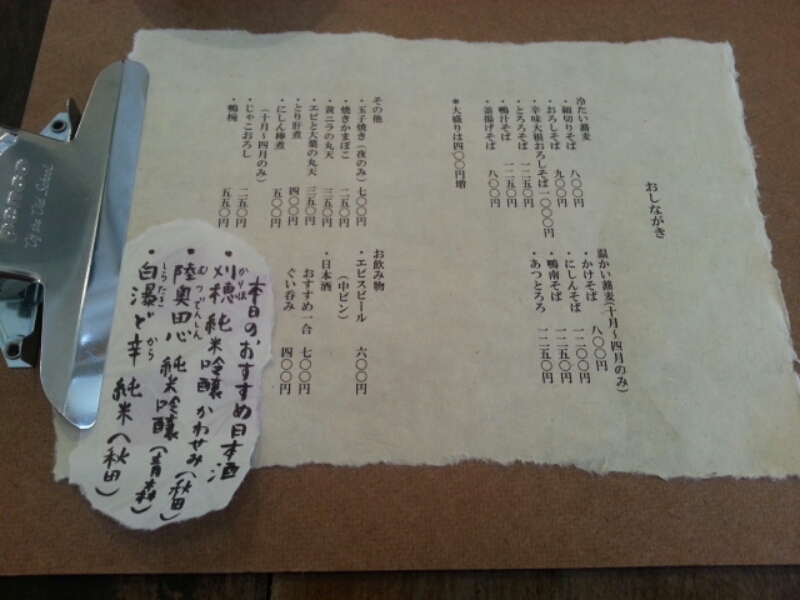 おしながき
冷たい蕎麦
・細切りそば 八〇〇円
・おろしそば 九〇〇円
・辛味大根おろしそば 一〇〇〇円
・とろろそば 一一五〇円
・鴨汁そば 一二五〇円
・釜揚げそば 八〇〇円
＊大盛りは四〇〇円増
温かい蕎麦(十月～四月のみ)
・かけそば 八〇〇円
・にしんそば 一二〇〇円
・鴨南そば 一二五〇円
・あつとろろ 一二五〇円
その他
・玉子焼き(夜のみ) 七〇〇円
・焼きかまぼこ 二五〇円
・黄ニラの丸天 三五〇円
・エビと大葉の丸天 三五〇円
・とり肝煮 四〇〇円
・にしん棒煮 五〇〇円
(十月～四月のみ)
・じゃこおろし 二五〇円
・鴨椀 五五〇円
お飲み物
・エビスビール 六〇〇円
(中ビン)
・日本酒
おすすめ一合 七〇〇円
ぐい呑み 四〇〇円
本日のおすすめ日本酒
・刈穂 純米吟醸 かわせみ(秋田)
かりほ
・陸奥田心 純米吟醸(青森)
むつでんしん
・白瀑 ど辛 純米(秋田)
しらたき から